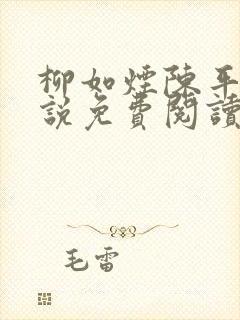 柳如煙陳平
說免費閱讀
毛雷